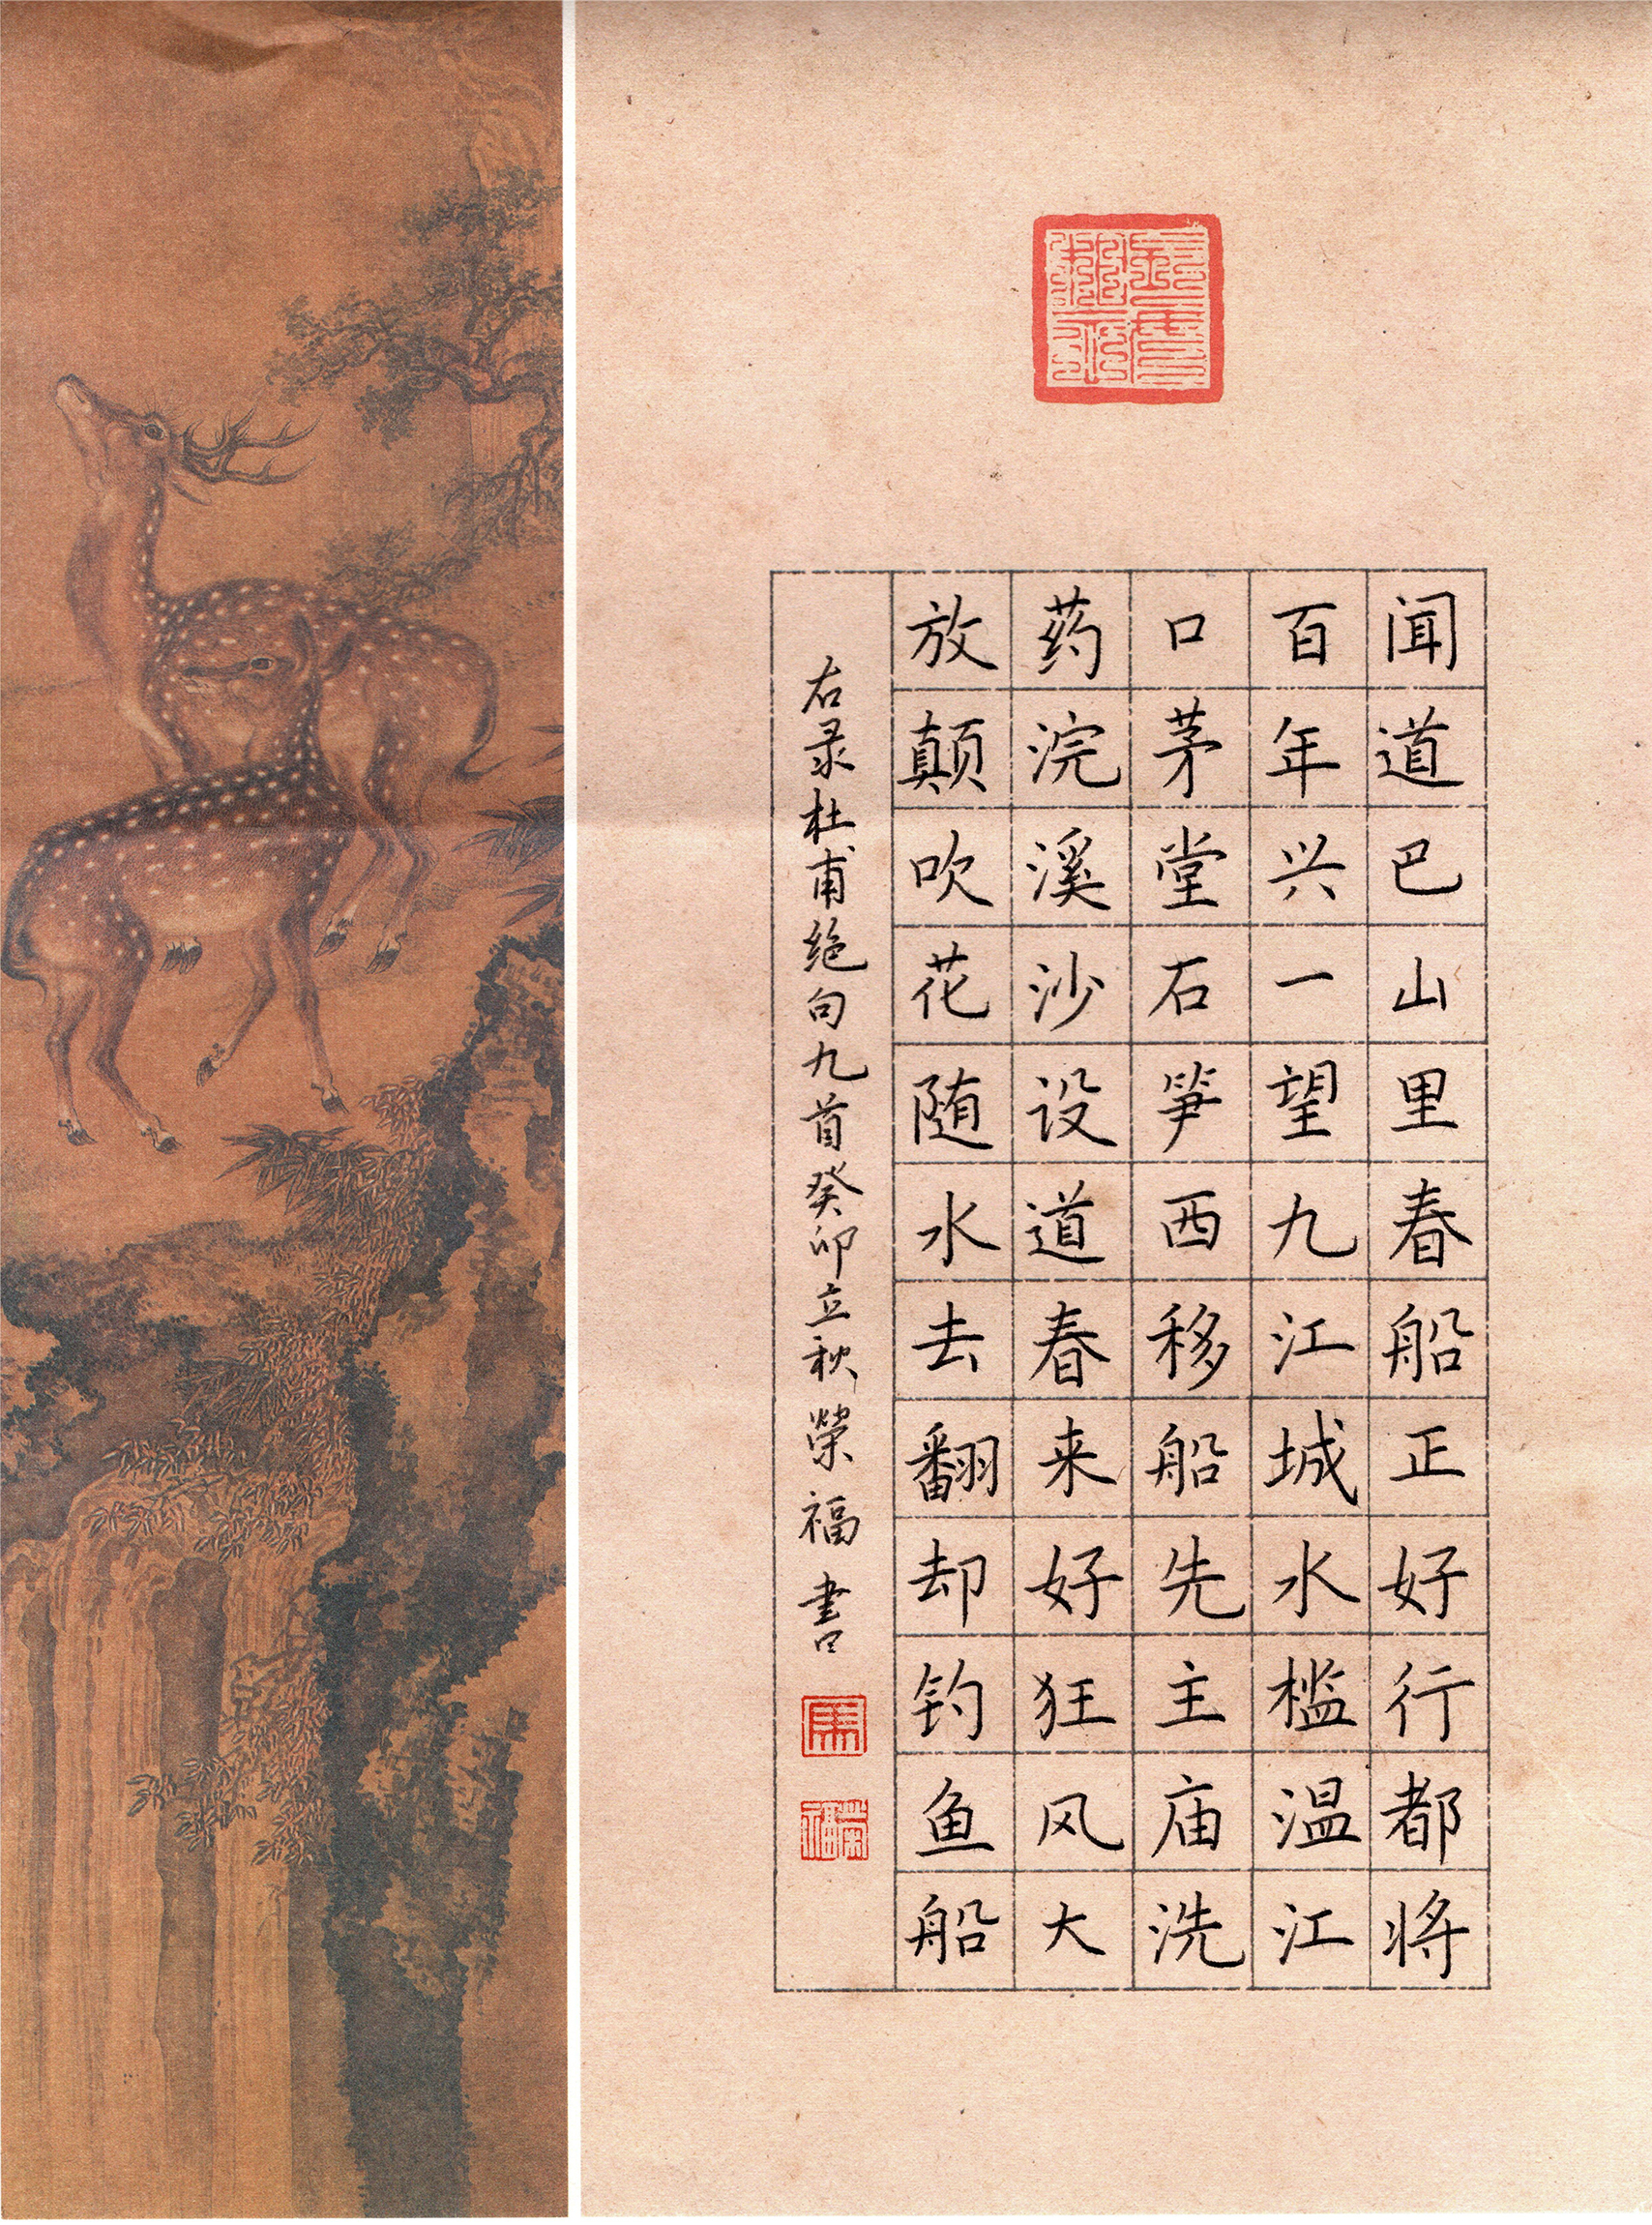 闻道巴山里春船正好行都将
百年兴一望九江城水槛温江
口茅堂石笋西移船先主庙洗
药浣溪沙设道春来好狂风大
放颠吹花随水去翻却钓鱼船
右录杜甫绝句九首癸卯立秋榮福書
馬
榮福